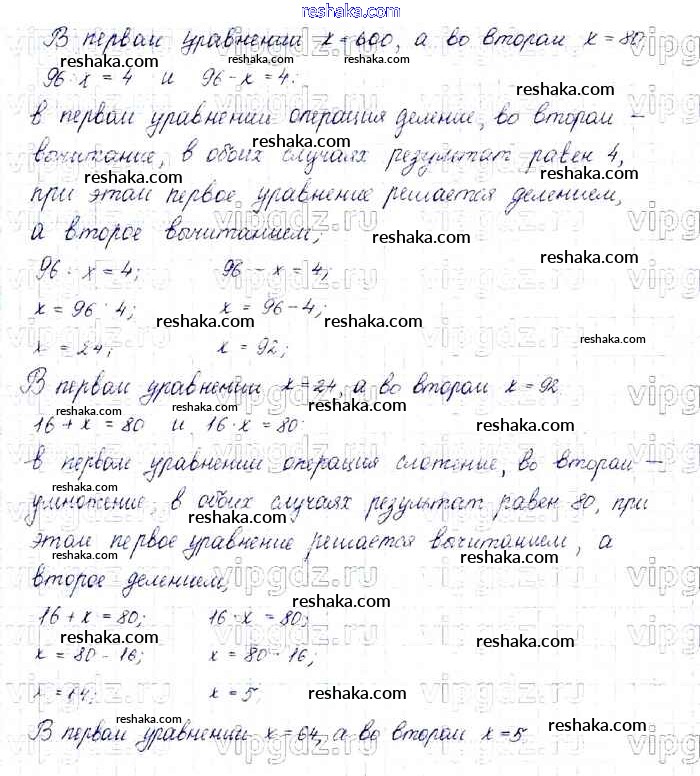 reshaka.com
В первом уравнении x = 600, а во втором x = 80
96 : x = 4 и 96 - x = 4:
reshaka.com reshaka.com
в первом уравнении операция деление, во втором –
reshaka.com
вычитание, в обоих случаях результат равен 4,
reshaka.com reshaka.com
при этом первое уравнение решается делением,
vipgdz.ru
а второе вычитанием;
reshaka.com
96 : x = 4; 96 - x = 4;
reshaka.com
x = 96 : 4; x = 96 - 4;
reshaka.com reshaka.com
x = 24; x = 92;
vipgdz.ru
В первом уравнении x = 24, а во втором x = 92
reshaka.com reshaka.com reshaka.com
16 + x = 80 и 16 · x = 80:
в первом уравнении операция сложение, во втором –
reshaka.com
умножение, в обоих случаях результат равен 80, при
reshaka.com reshaka.com
этом первое уравнение решается вычитанием, а
reshaka.com reshaka.com
второе делением;
vipgdz.ru
reshaka.com
16 + x = 80; 16 · x = 80;
reshaka.com reshaka.com
x = 80 - 16; x = 80 : 16;
x = 64; x = 5;
reshaka.com
reshaka.com reshaka.com
В первом уравнении x = 64, а во втором x = 5